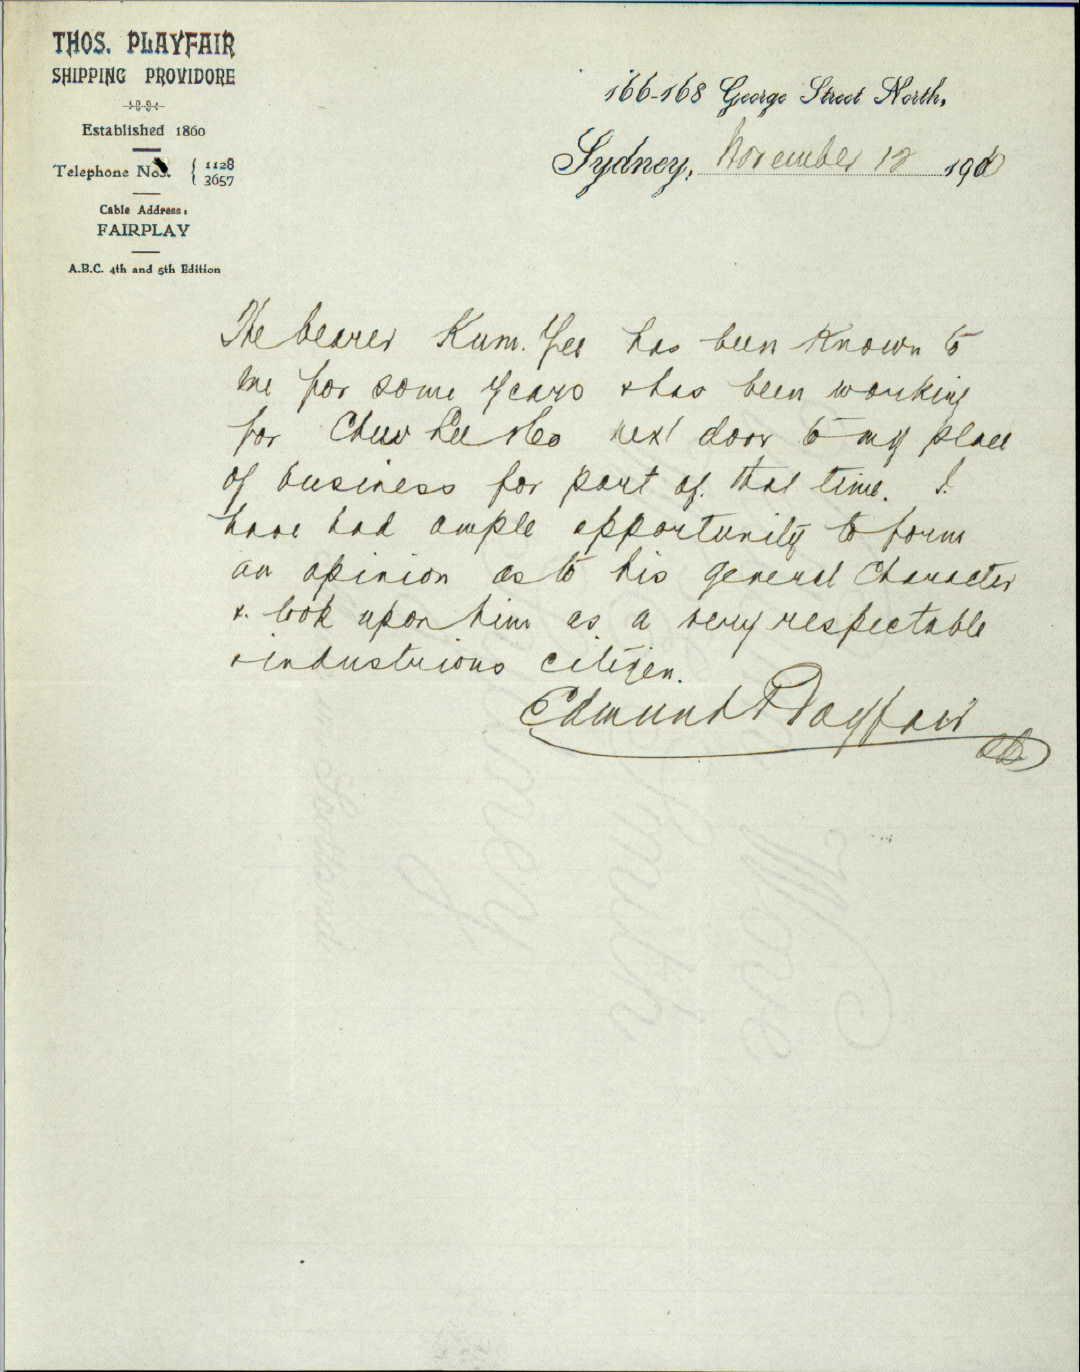 THOS. PLAYFAIR
SHIPPING PROVIDORE
Established 1860
Telephone Nos. { 1128
{ 3657
Cable Address:
FAIRPLAY
A.B.C. 4th and 5th Edition
166-168 George Street North,
Sydney, November 12 190
The bearer Kum. Yee has been known to
me for some years & has been working
for Chew Lee & Co next door to my place
of business for part of. that time. I.
have had ample opportunity to form
an opinion as to his general character
&. look upon him as a very respectable
& industrious citizen.
Edmund Playfair